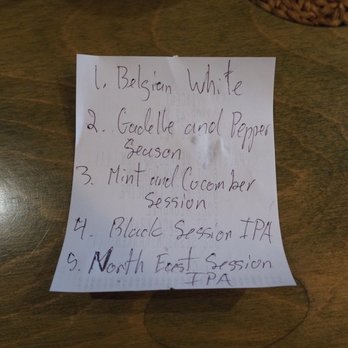 1. Belgian White
2. Gadelle and Pepper
Season
3. Mint and Cocomber
Session
4. Black Session IPA
5. North East Session
IPA